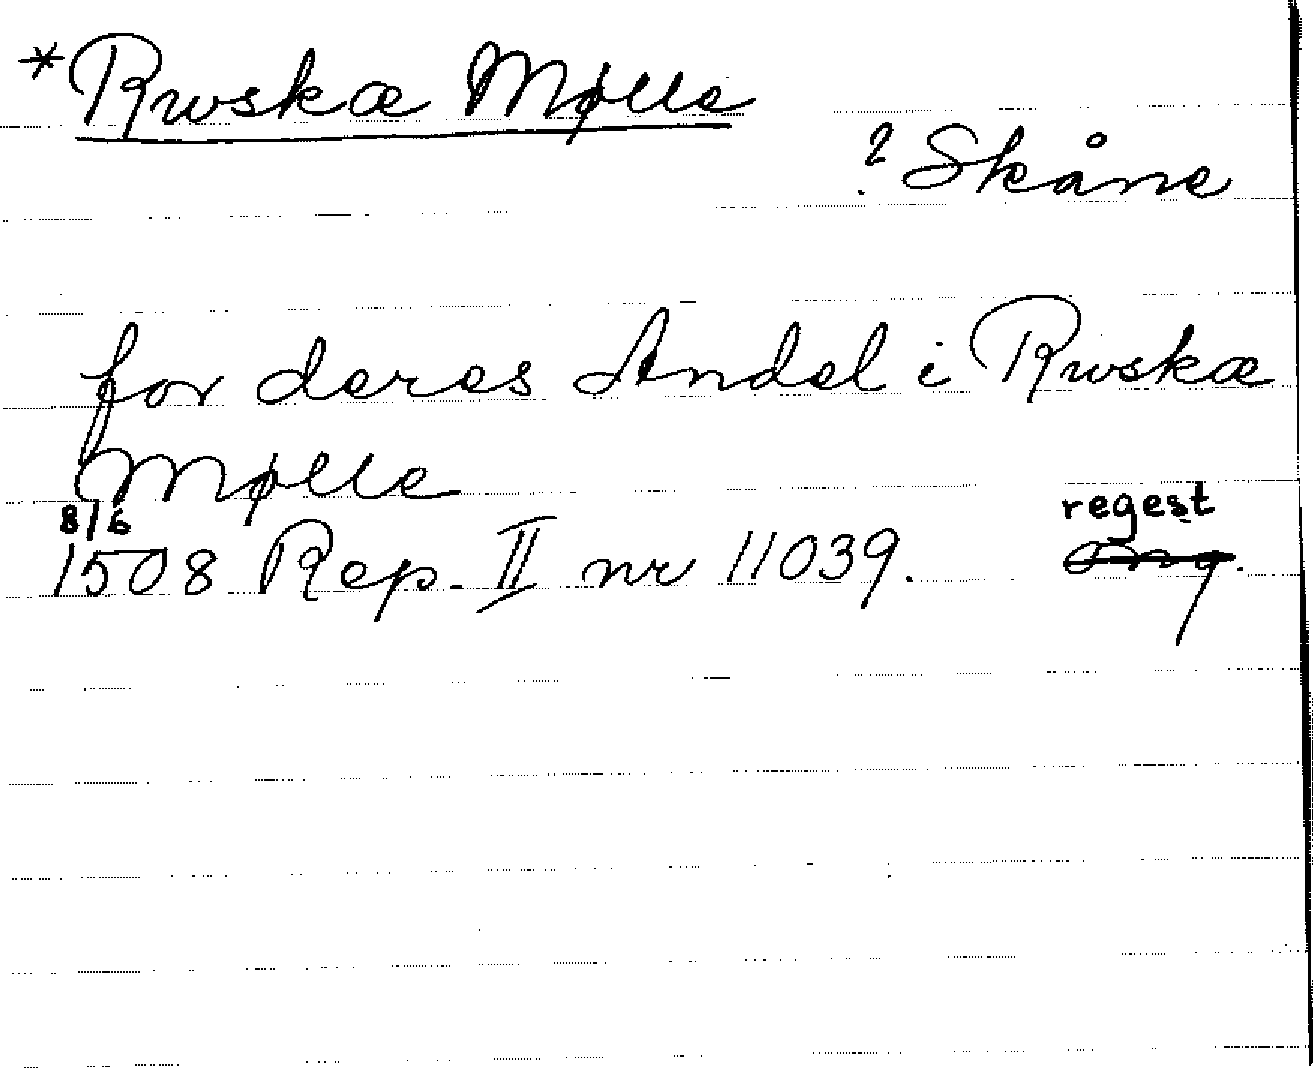 *Rwskæ Mølle
? Skåne
for deres Andel i Rwskæ
Mølle
8/6 regest
1508 Rep. II nr 11039. Omg.